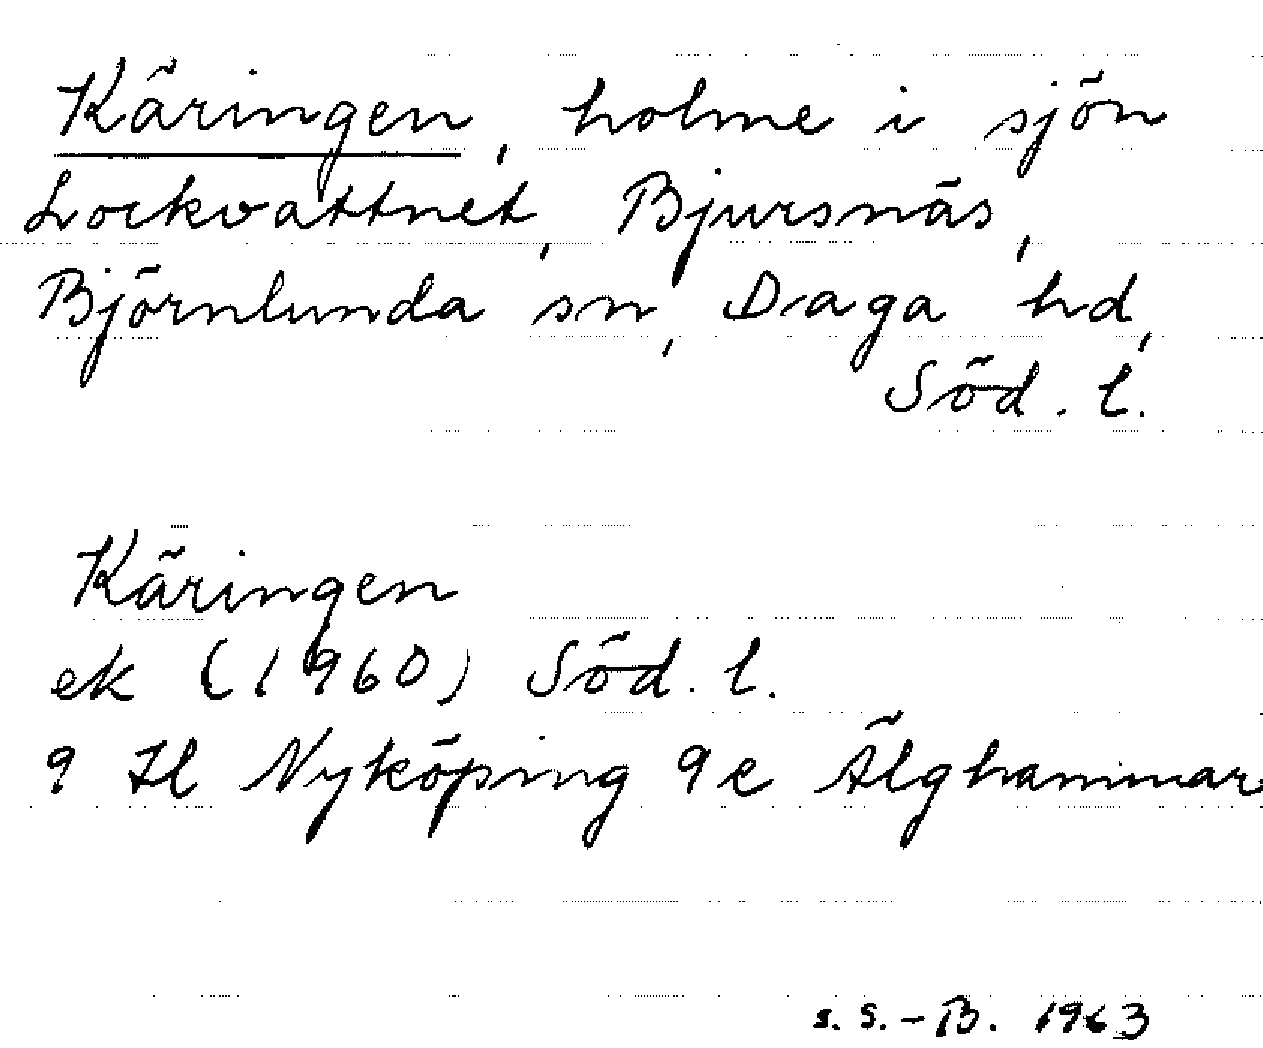 Käringen, holme i sjön
Lockvattnet, Bjursnäs,
Björnlunda sn, Daga hd,
Söd. l.
Käringen
ek (1960) Söd. l.
9 H Nyköping 9 e Älghammar
s. S.-B. 1963